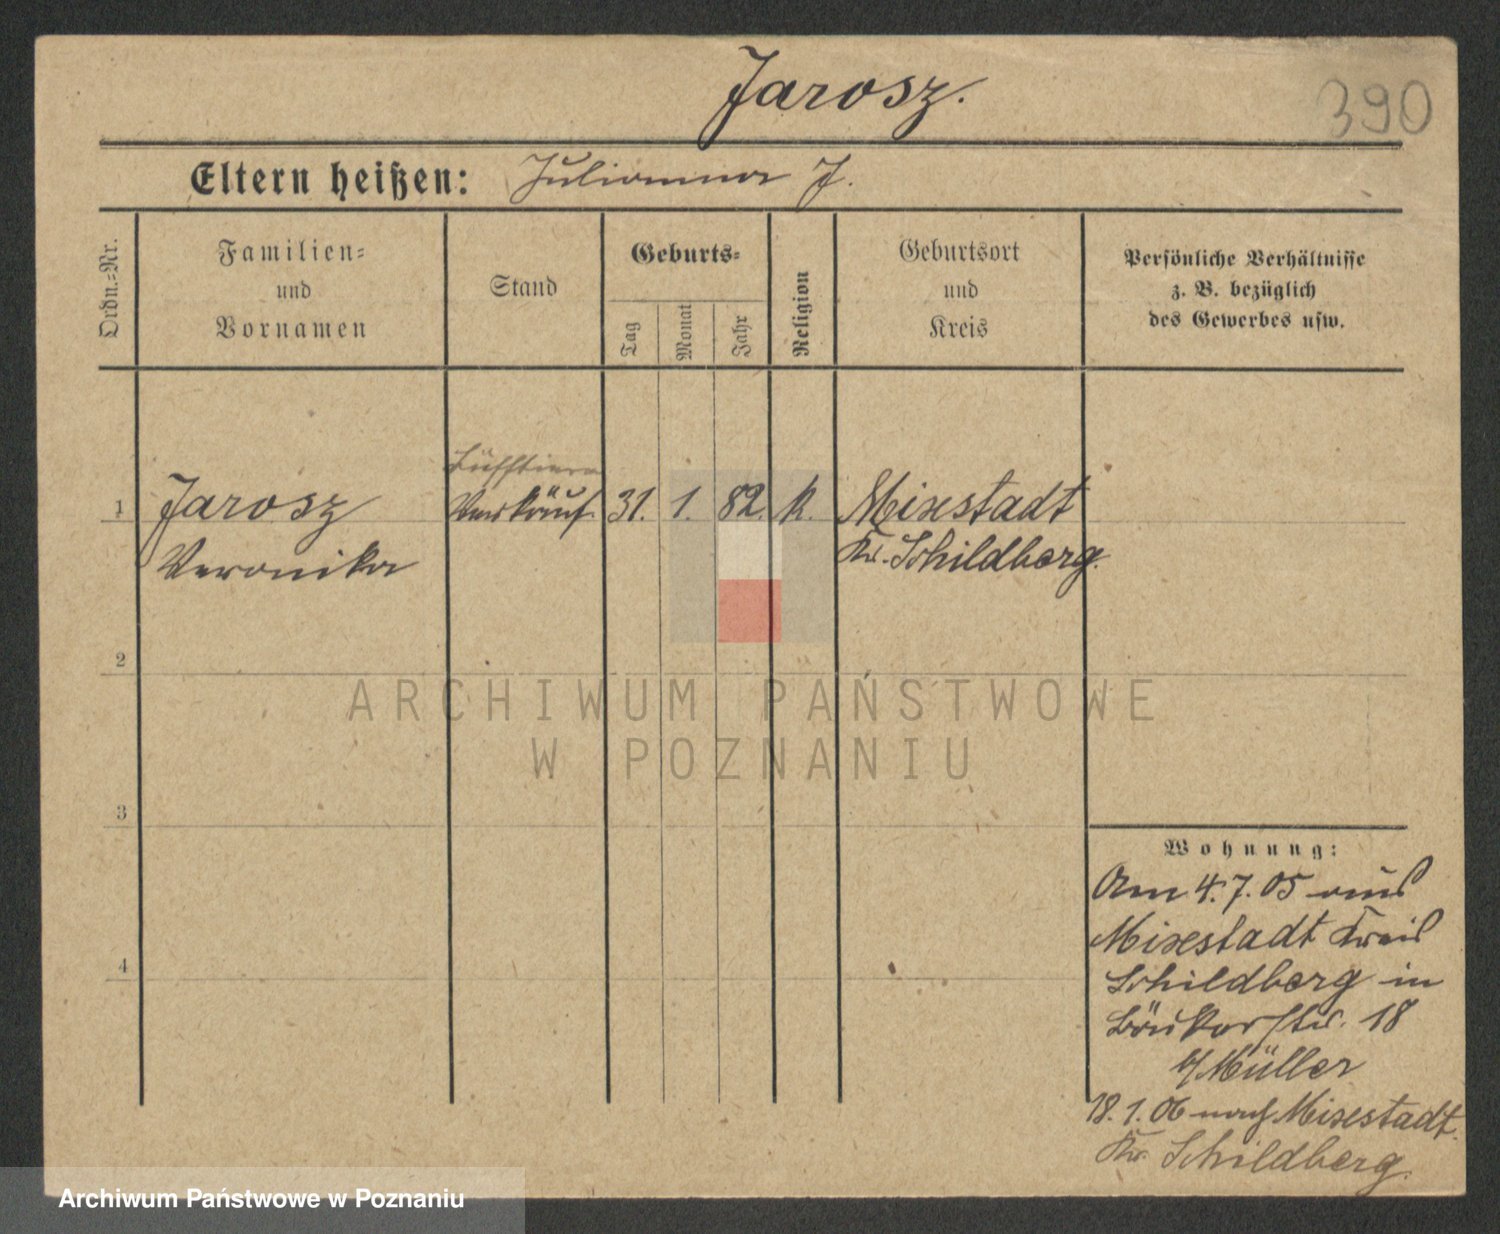 Jarosz.
390
Eltern heißen: Julianna J.
Ordn.-Nr.
Familien-
und
Vornamen
Stand
Geburts-
Tag
Monat
Jahr
Religion
Geburtsort
und
Kreis
Persönliche Verhältnisse
z. B. bezüglich
des Gewerbes usw.
1 Jarosz Verkäuf. 31. 1. 82. k. Mixstadt
Veronika Kr. Schildberg.
2
ARCHIWUM PAŃSTWOWE
W POZNANIU
3
4
Wohnung:
Am 4.7.05 aus
Mixstadt Kreis
Schildberg in
18
b/Müller
18.1.06 nach Mixstadt.
Kr. Schildberg.
Archiwum Państwowe w Poznaniu